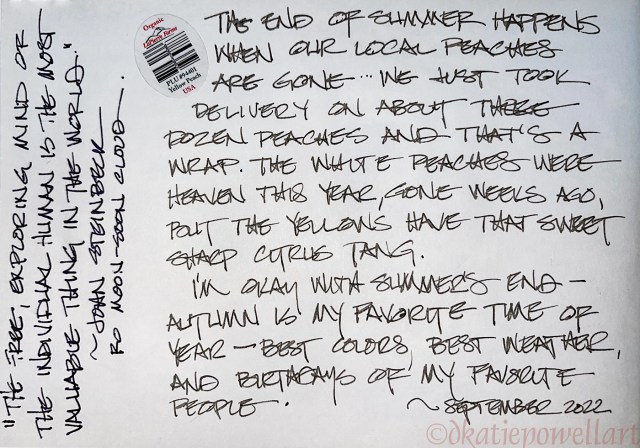 THE END OF SUMMER HAPPENS
WHEN OUR LOCAL PEACHES
ARE GONE... WE JUST TOOK
DELIVERY ON ABOUT THREE
DOZEN PEACHES AND THAT'S A
WRAP. THE WHITE PEACHES WERE
HEAVEN THIS YEAR, GONE WEEKS AGO,
BUT THE YELLOWS HAVE THAT SWEET
SHARP CITRUS TANG.
I'M OKAY WITH SUMMER'S END –
AUTUMN IS MY FAVORITE TIME OF
YEAR – BEST COLORS, BEST WEATHER,
AND BIRTHDAYS OF MY FAVORITE
PEOPLE.
~ SEPTEMBER 2022
"THE FREE, EXPLORING MIND OF
THE INDIVIDUAL HUMAN IS THE MOST
VALUABLE THING IN THE WORLD."
~JOHN STEINBECK
RO MOON-SOON CLOUD
Organic
PLU #94401
Yellow Peach
USA
©dkatiepowellart